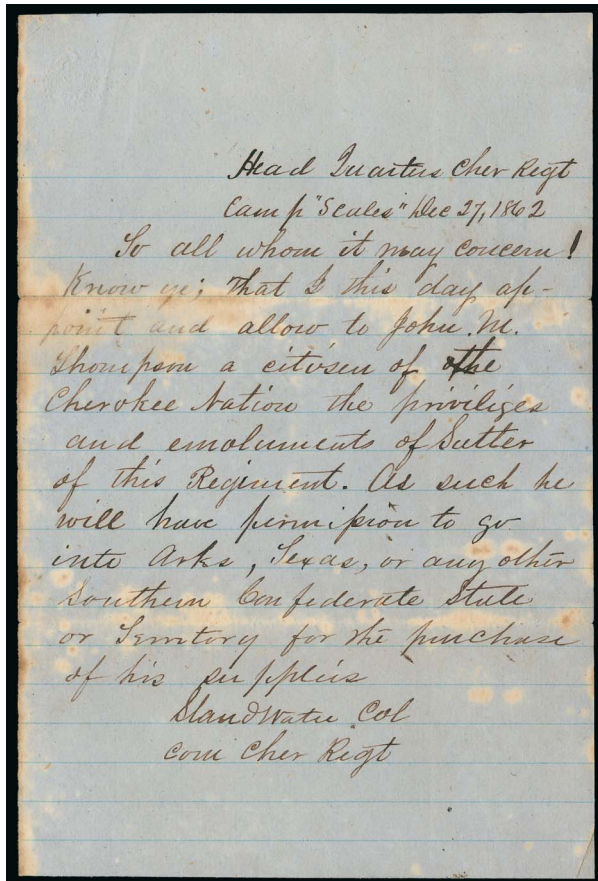 Head Quarters Cher Regt
Camp "Scales" Dec 27, 1862
To all whom it may concern!
Know ye; that I this day ap-
point and allow to John M.
Thompson a citisen of the
Cherokee Nation the priviliges
and emoluments of Sutter
of this Regiment. As such he
will have permission to go
into Arks, Texas, or any other
Southern Confederate State
or Territory for the purchase
of his supplies
Stand Watie Col
com Cher Regt